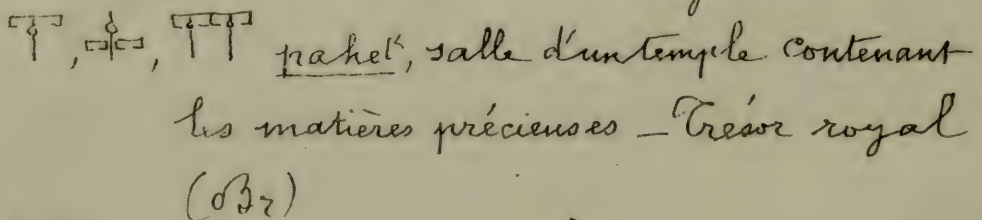 , , pahet', salle d'un temple contenant
les matières précieuses _ Trésor royal
(Br)